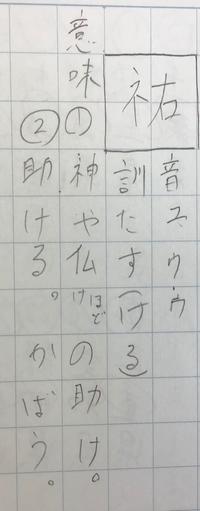 祐
音ユウ・ウ
訓たす(ける)
意味①神や仏の助け。
ほとけ
②助ける。かばう。